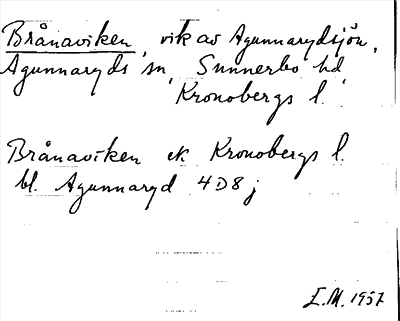 Brånaviken, vik av Agunnarydsjön,
Agunnaryds sn, Sunnerbo hd
Kronobergs l.
Brånaviken ek Kronobergs l.
bl. Agunnaryd 4D8j
E.M. 1957